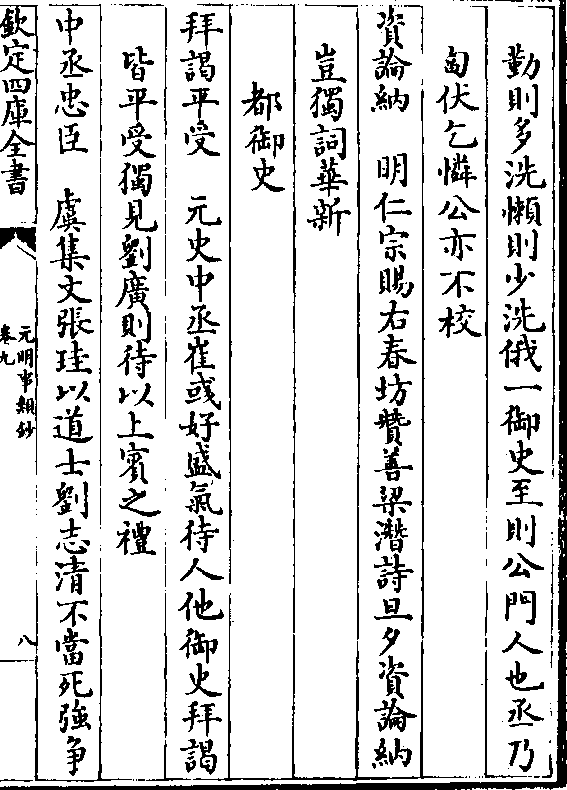 勤則多洗懶則少洗俄一御史至則公門人也丞乃
匐伏乞憐公亦不校
資論納　明仁宗賜右春坊贊善梁潛詩旦夕資論納
豈獨詞華新
都御史
拜謁平受　元史中丞崔彧好盛氣待人他御史拜謁
皆平受獨見劉廣則待以上賓之禮
中丞忠臣　虞集文張珪以道士劉志清不當死強爭
欽定四庫全書
元明事類鈔
卷九
八